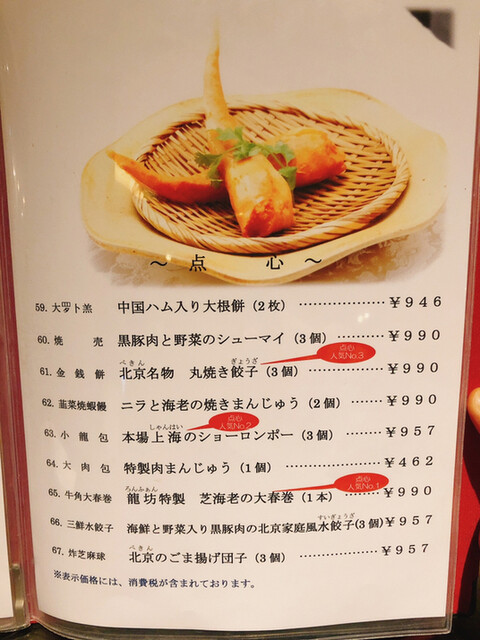 ～点　心～
59. 大罗卜羔　中国ハム入り大根餅（2枚）………………￥９４６
60. 焼　　売　黒豚肉と野菜のシューマイ（3個）…………￥９９０
点心人気No.3
ぺきん　ぎょうざ
61. 金 銭 餅　北京名物　丸焼き餃子（3個）………………￥９９０
62. 韮菜焼蝦饅　ニラと海老の焼きまんじゅう（2個）………￥９９０
点心人気No.2
しゃんはい
63. 小 龍 包　本場上海のショーロンポー（3個）…………￥９５７
64. 大 肉 包　特製肉まんじゅう（1個）……………………￥４６２
点心人気No.1
ろんふぁん
65. 牛角大春巻　龍坊特製　芝海老の大春巻（1本）…………￥９９０
すいぎょうざ
66. 三鮮水餃子　海鮮と野菜入り黒豚肉の北京家庭風水餃子(3個)￥９５７
ぺきん
67. 炸芝麻球　北京のごま揚げ団子（3個）…………………￥９５７
※表示価格には、消費税が含まれております。